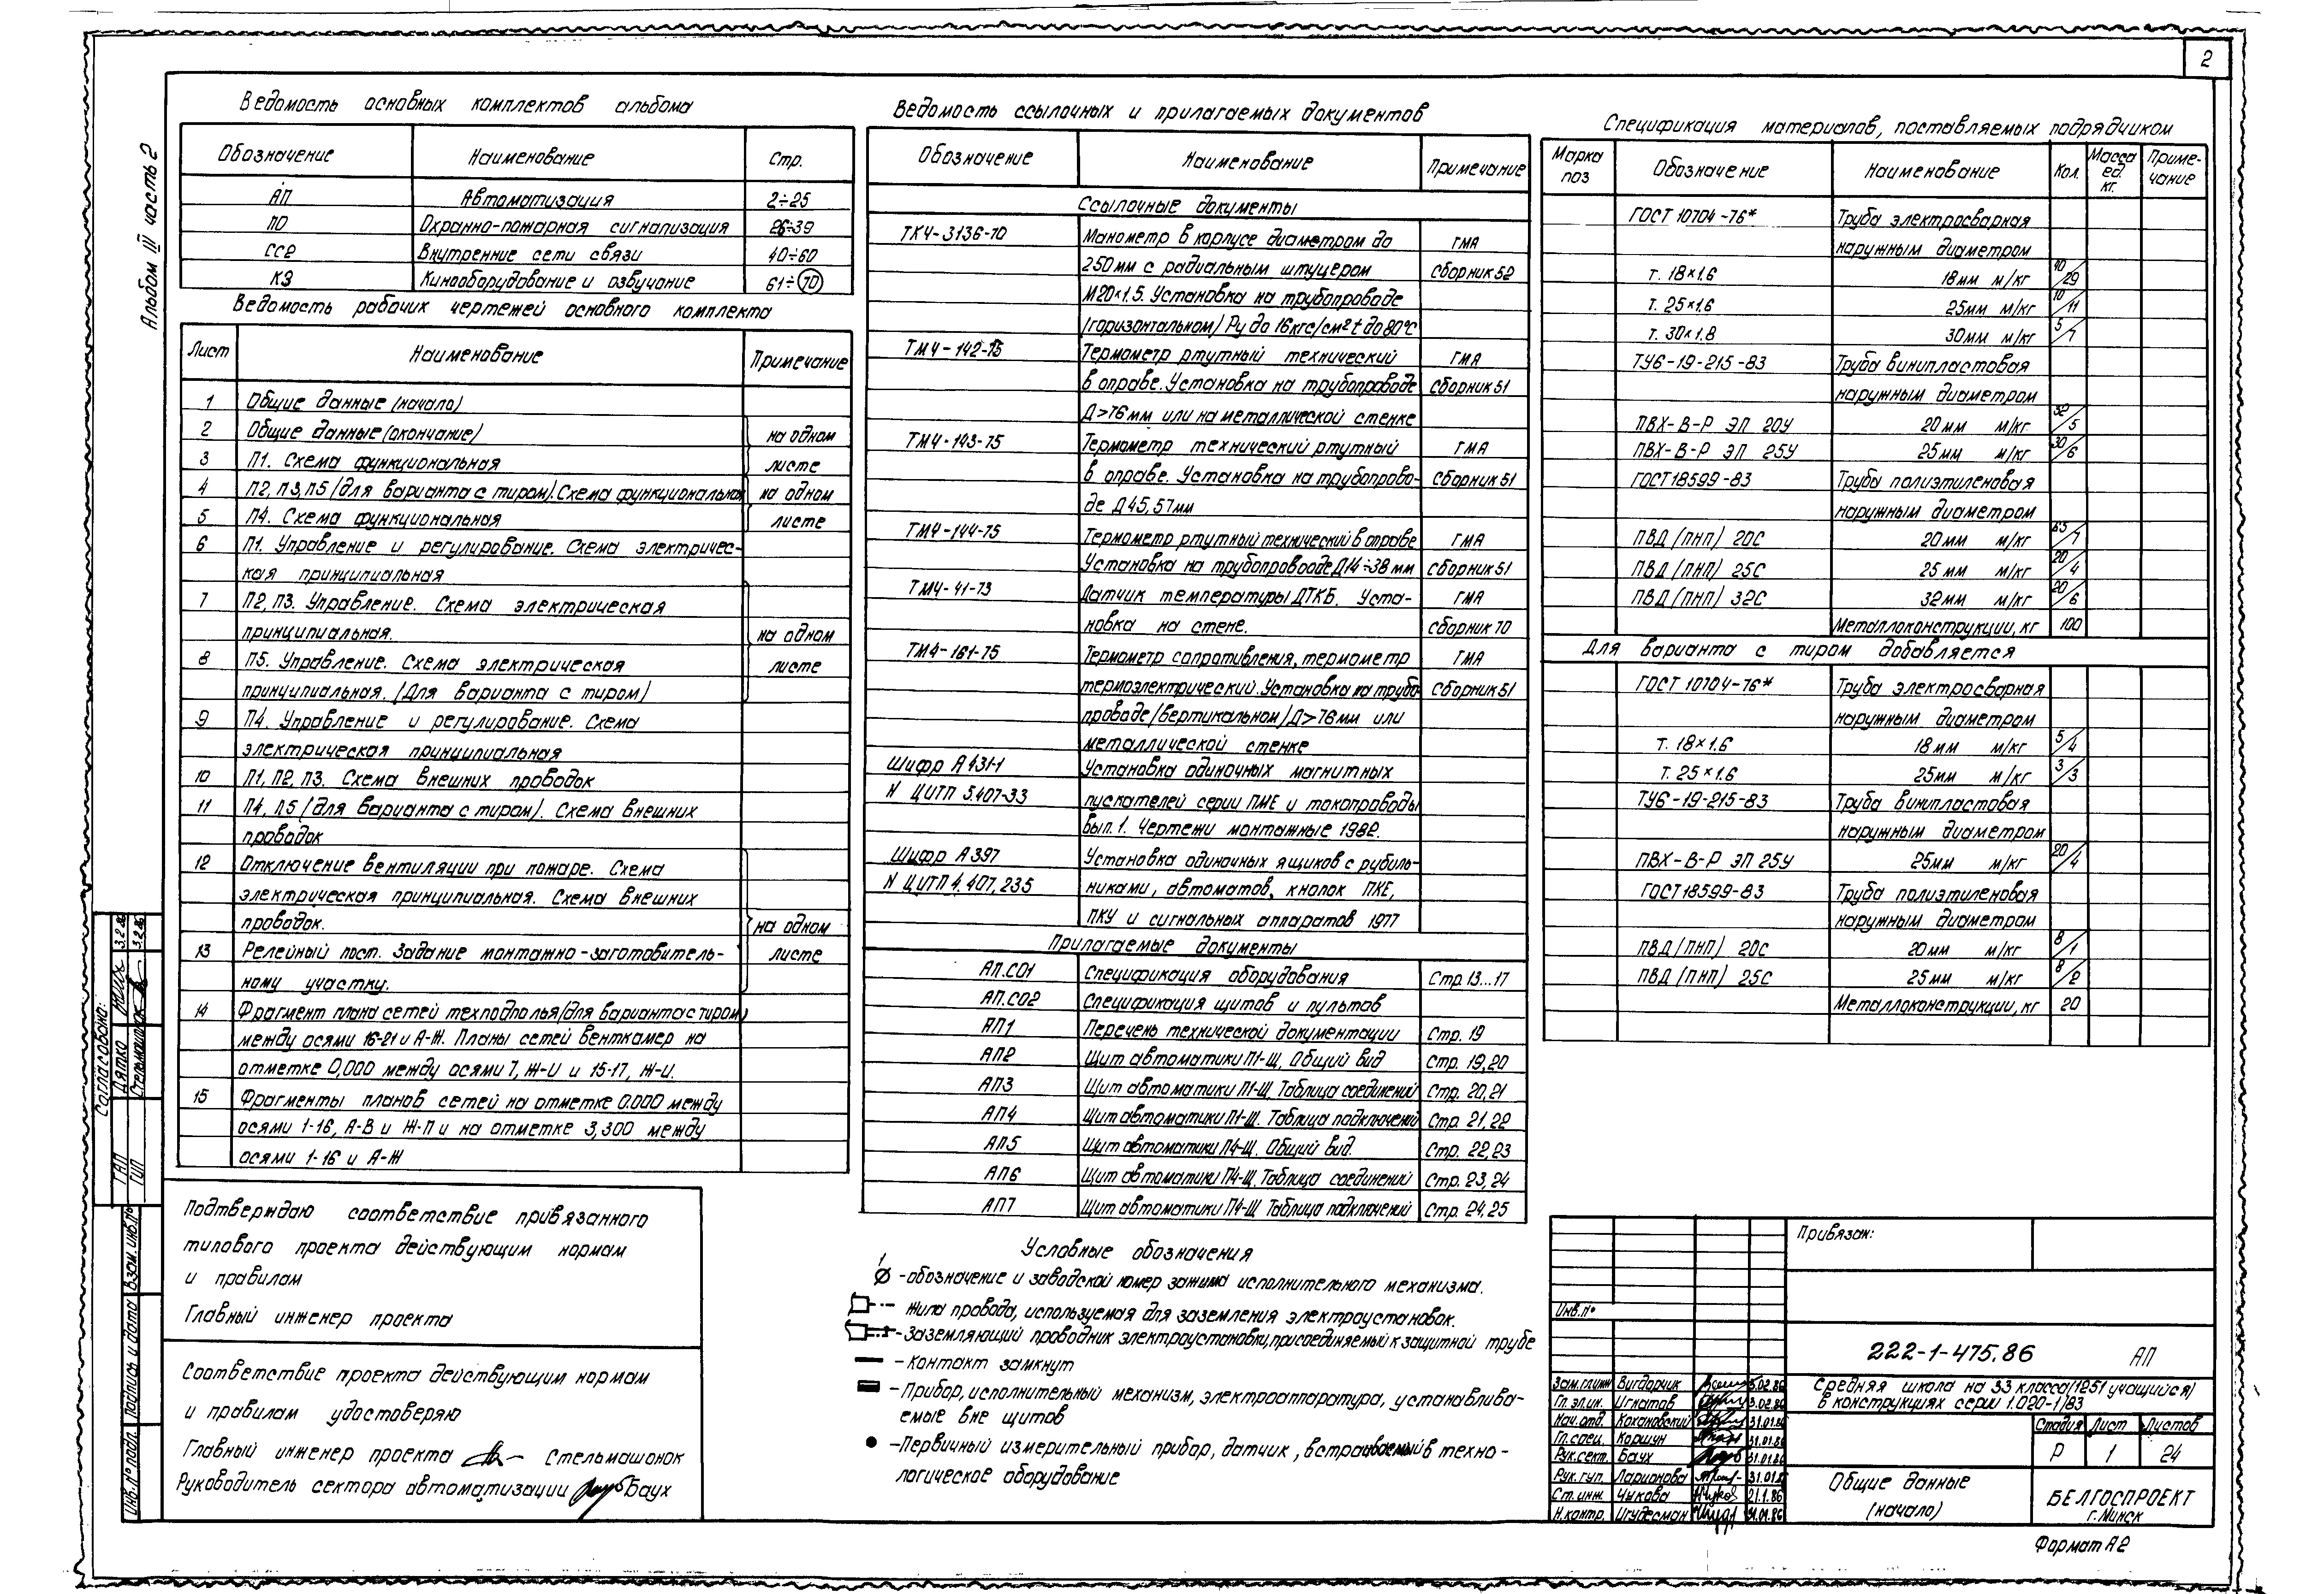 2
Альбом III часть 2
Ведомость основных комплектов альбома
Обозначение Наименование Стр.
АП Автоматизация 2÷25
ПО Охранно-пожарная сигнализация 26÷39
СС2 Внутренние сети связи 40÷60
КЭ Кинооборудование и озвучание 61÷70
Ведомость рабочих чертежей основного комплекта
Лист Наименование Примечание
1 Общие данные (начало)
2 Общие данные (окончание) на одном
3 П1. Схема функциональная листе
4 П2, П3, П5 (для варианта с тиром). Схема функциональная на одном
5 П4. Схема функциональная листе
6 П1. Управление и регулирование. Схема электричес-
кая принципиальная
7 П2, П3. Управление. Схема электрическая
принципиальная. на одном
8 П5. Управление. Схема электрическая листе
принципиальная. (Для варианта с тиром)
9 П4. Управление и регулирование. Схема
электрическая принципиальная
10 П1, П2, П3. Схема внешних проводок
11 П4, П5 (для варианта с тиром). Схема внешних
проводок
12 Отключение вентиляции при пожаре. Схема
электрическая принципиальная. Схема внешних
проводок. на одном
13 Релейный пост. Задание монтажно-заготовитель- листе
ному участку.
14 Фрагмент плана сетей техподполья (для варианта с тиром)
между осями 16-21 и А-Ж. Планы сетей венткамер на
отметке 0,000 между осями 7, Ж-И и 15-17, Ж-И.
15 Фрагменты планов сетей на отметке 0.000 между
осями 1-16, А-В и Ж-П и на отметке 3,300 между
осями 1-16 и А-Ж
Подтверждаю соответствие привязанного
типового проекта действующим нормам
и правилам
Главный инженер проекта
Соответствие проекта действующим нормам
и правилам удостоверяю
Главный инженер проекта Стельмашонок
Руководитель сектора автоматизации Баух
Ведомость ссылочных и прилагаемых документов
Обозначение Наименование Примечание
Ссылочные документы
ТК4-3136-70 Манометр в корпусе диаметром до ГМА
250мм с радиальным штуцером сборник 52
М20×1.5. Установка на трубопроводе
(горизонтальном) Ру до 16кгс/см² t до 80°С
ТМ4-142-75 Термометр ртутный технический ГМА
в оправе. Установка на трубопроводе сборник 51
Д>76мм или на металлической стенке
ТМ4-143-75 Термометр технический ртутный ГМА
в оправе. Установка на трубопрово- сборник 51
де Д45, 57мм
ТМ4-144-75 Термометр ртутный технический в оправе ГМА
Установка на трубопроводе Д14÷38мм сборник 51
ТМ4-41-73 Датчик температуры ДТКБ. Уста- ГМА
новка на стене. сборник 70
ТМ4-161-75 Термометр сопротивления, термометр ГМА
термоэлектрический. Установка на трубо- сборник 51
проводе (вертикальном) Д>76мм или
металлической стенке
Шифр А431-1 Установка одиночных магнитных
И ЦИТП 5.407-33 пускателей серии ПМЕ и токопроводы
вып.1. Чертежи монтажные 1982.
Шифр А397 Установка одиночных ящиков с рубиль-
И ЦИТП 4.407.235 никами, автоматов, кнопок ПКЕ,
ПКУ и сигнальных аппаратов 1977
Прилагаемые документы
АП.СО1 Спецификация оборудования Стр.13...17
АП.СО2 Спецификация щитов и пультов
АП1 Перечень технической документации Стр. 19
АП2 Щит автоматики П1-Щ. Общий вид Стр. 19,20
АП3 Щит автоматики П1-Щ. Таблица соединений Стр. 20,21
АП4 Щит автоматики П1-Щ. Таблица подключений Стр. 21,22
АП5 Щит автоматики П4-Щ. Общий вид. Стр. 22,23
АП6 Щит автоматики П4-Щ. Таблица соединений Стр. 23,24
АП7 Щит автоматики П4-Щ. Таблица подключений Стр. 24,25
Условные обозначения
1
-обозначение и заводской номер зажима исполнительного механизма.
- Жила провода, используемая для заземления электроустановок.
-Заземляющий проводник электроустановки, присоединяемый к защитной трубе
- Контакт замкнут
- Прибор, исполнительный механизм, электроаппаратура, устанавлива-
емые вне щитов
-Первичный измерительный прибор, датчик, встраиваемый в техно-
логическое оборудование
Спецификация материалов, поставляемых подрядчиком
Марка поз Обозначение Наименование Кол. Масса ед. кг. Приме-чание
ГОСТ 10704-76* Труба электросварная
наружным диаметром
т. 18×1.6 18мм м/кг 40/29
т. 25×1.6 25мм м/кг 10/11
т. 30×1.8 30мм м/кг 5/7
ТУ6-19-215-83 Труба винипластовая
наружным диаметром
ПВХ-В-Р ЭП 20У 20мм м/кг 32/5
ПВХ-В-Р ЭП 25У 25мм м/кг 30/6
ГОСТ 18599-83 Труба полиэтиленовая
наружным диаметром
ПВД (ПНП) 20С 20мм м/кг 65/7
ПВД (ПНП) 25С 25мм м/кг 20/4
ПВД (ПНП) 32С 32мм м/кг 20/6
Металлоконструкции, кг 100
Для варианта с тиром добавляется
ГОСТ 10704-76* Труба электросварная
наружным диаметром
т. 18×1.6 18мм м/кг 5/4
т. 25×1.6 25мм м/кг 3/3
ТУ6-19-215-83 Труба винипластовая
наружным диаметром
ПВХ-В-Р ЭП 25У 25мм м/кг 20/4
ГОСТ 18599-83 Труба полиэтиленовая
наружным диаметром
ПВД (ПНП) 20С 20мм м/кг 8/1
ПВД (ПНП) 25С 25мм м/кг 8/2
Металлоконструкции, кг 20
Привязан:
Инв.№
222-1-475.86 АП
Зам.гл.инж Вигдорчик 3.02.86
Гл.эл.ин. Игнатов 3.02.86
Нач.отд. Кохановский 31.01.86
Гл.спец. Коршун 31.01.86
Рук.сект. Баух 31.01.86
Рук.гип. Ларионова 31.01.86
Ст.инж. Чукова 21.1.86
Н.контр. Игудесман 31.01.86
Средняя школа на 33 класса (1251 учащийся)
в конструкциях серии 1.020-1/83
Стадия Лист Листов
Р 1 24
Общие данные
(начало)
БЕЛГОСПРОЕКТ
г. Минск
Формат А2
Согласовано:
ГАП Дятко 3.2.86
ГИП Стельмашонок 3.2.86
Взам. инв.№
Подпись и дата
Инв.№ подл.